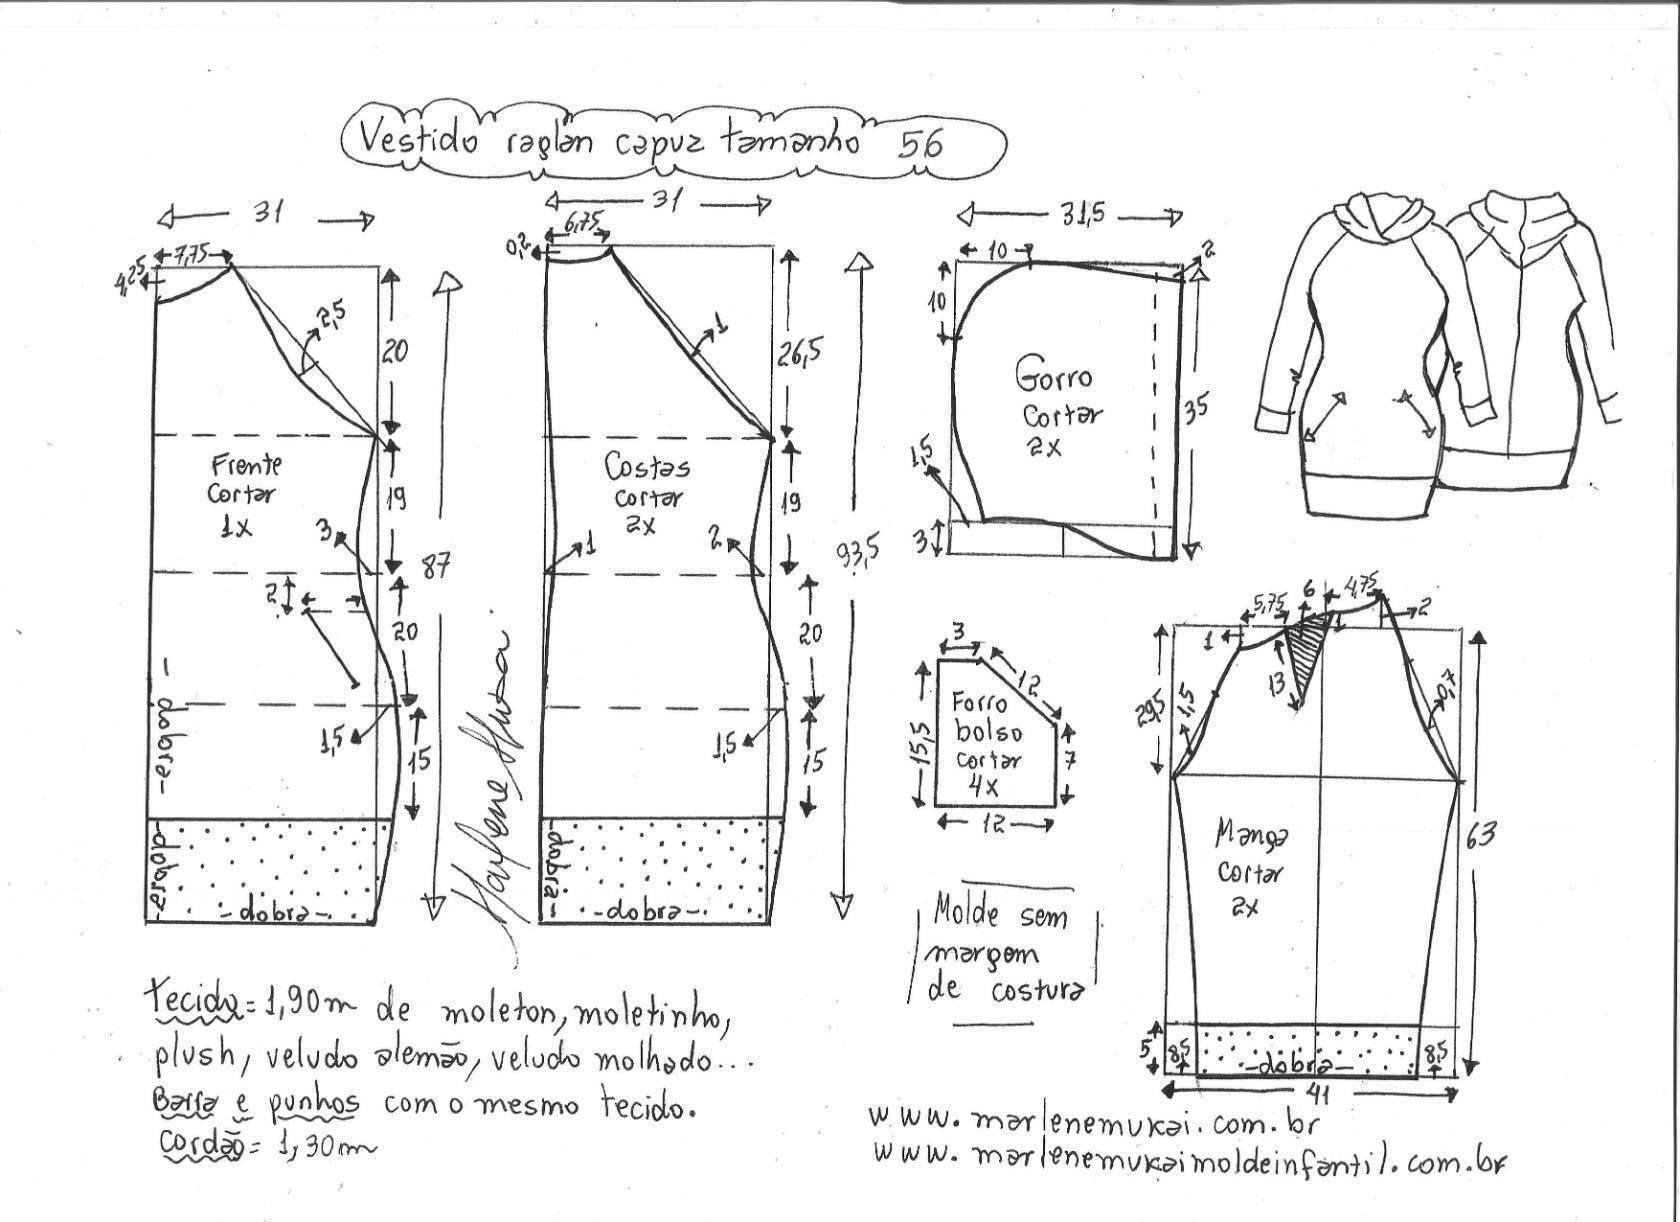 Vestido raglan capuz tamanho 56
31
7,75
4,25
2,5
20
Frente
cortar
1x
19
3
87
2
20
1,5
15
- dobra -
-dobra-
-dobra-
31
6,75
0,2
1
26,5
Costas
cortar
2x
19
1
2
93,5
20
1,5
15
-dobra-
-dobra-
Marlene Mukai
31,5
10
2
10
Gorro
cortar
2x
35
1,5
3
3
12
Forro
bolso
cortar
4x
15,5
7
12
Molde sem
margem
de costura
5,75
6
4,75
1
1
2
13
29,5
1,5
0,7
Manga
cortar
2x
63
5
8,5
-dobra-
8,5
41
tecido= 1,90m de moleton, moletinho,
plush, veludo alemão, veludo molhado...
Barra e punhos com o mesmo tecido.
cordão= 1,30m
www.marlenemukai.com.br
www.marlenemukaimoldeinfantil.com.br